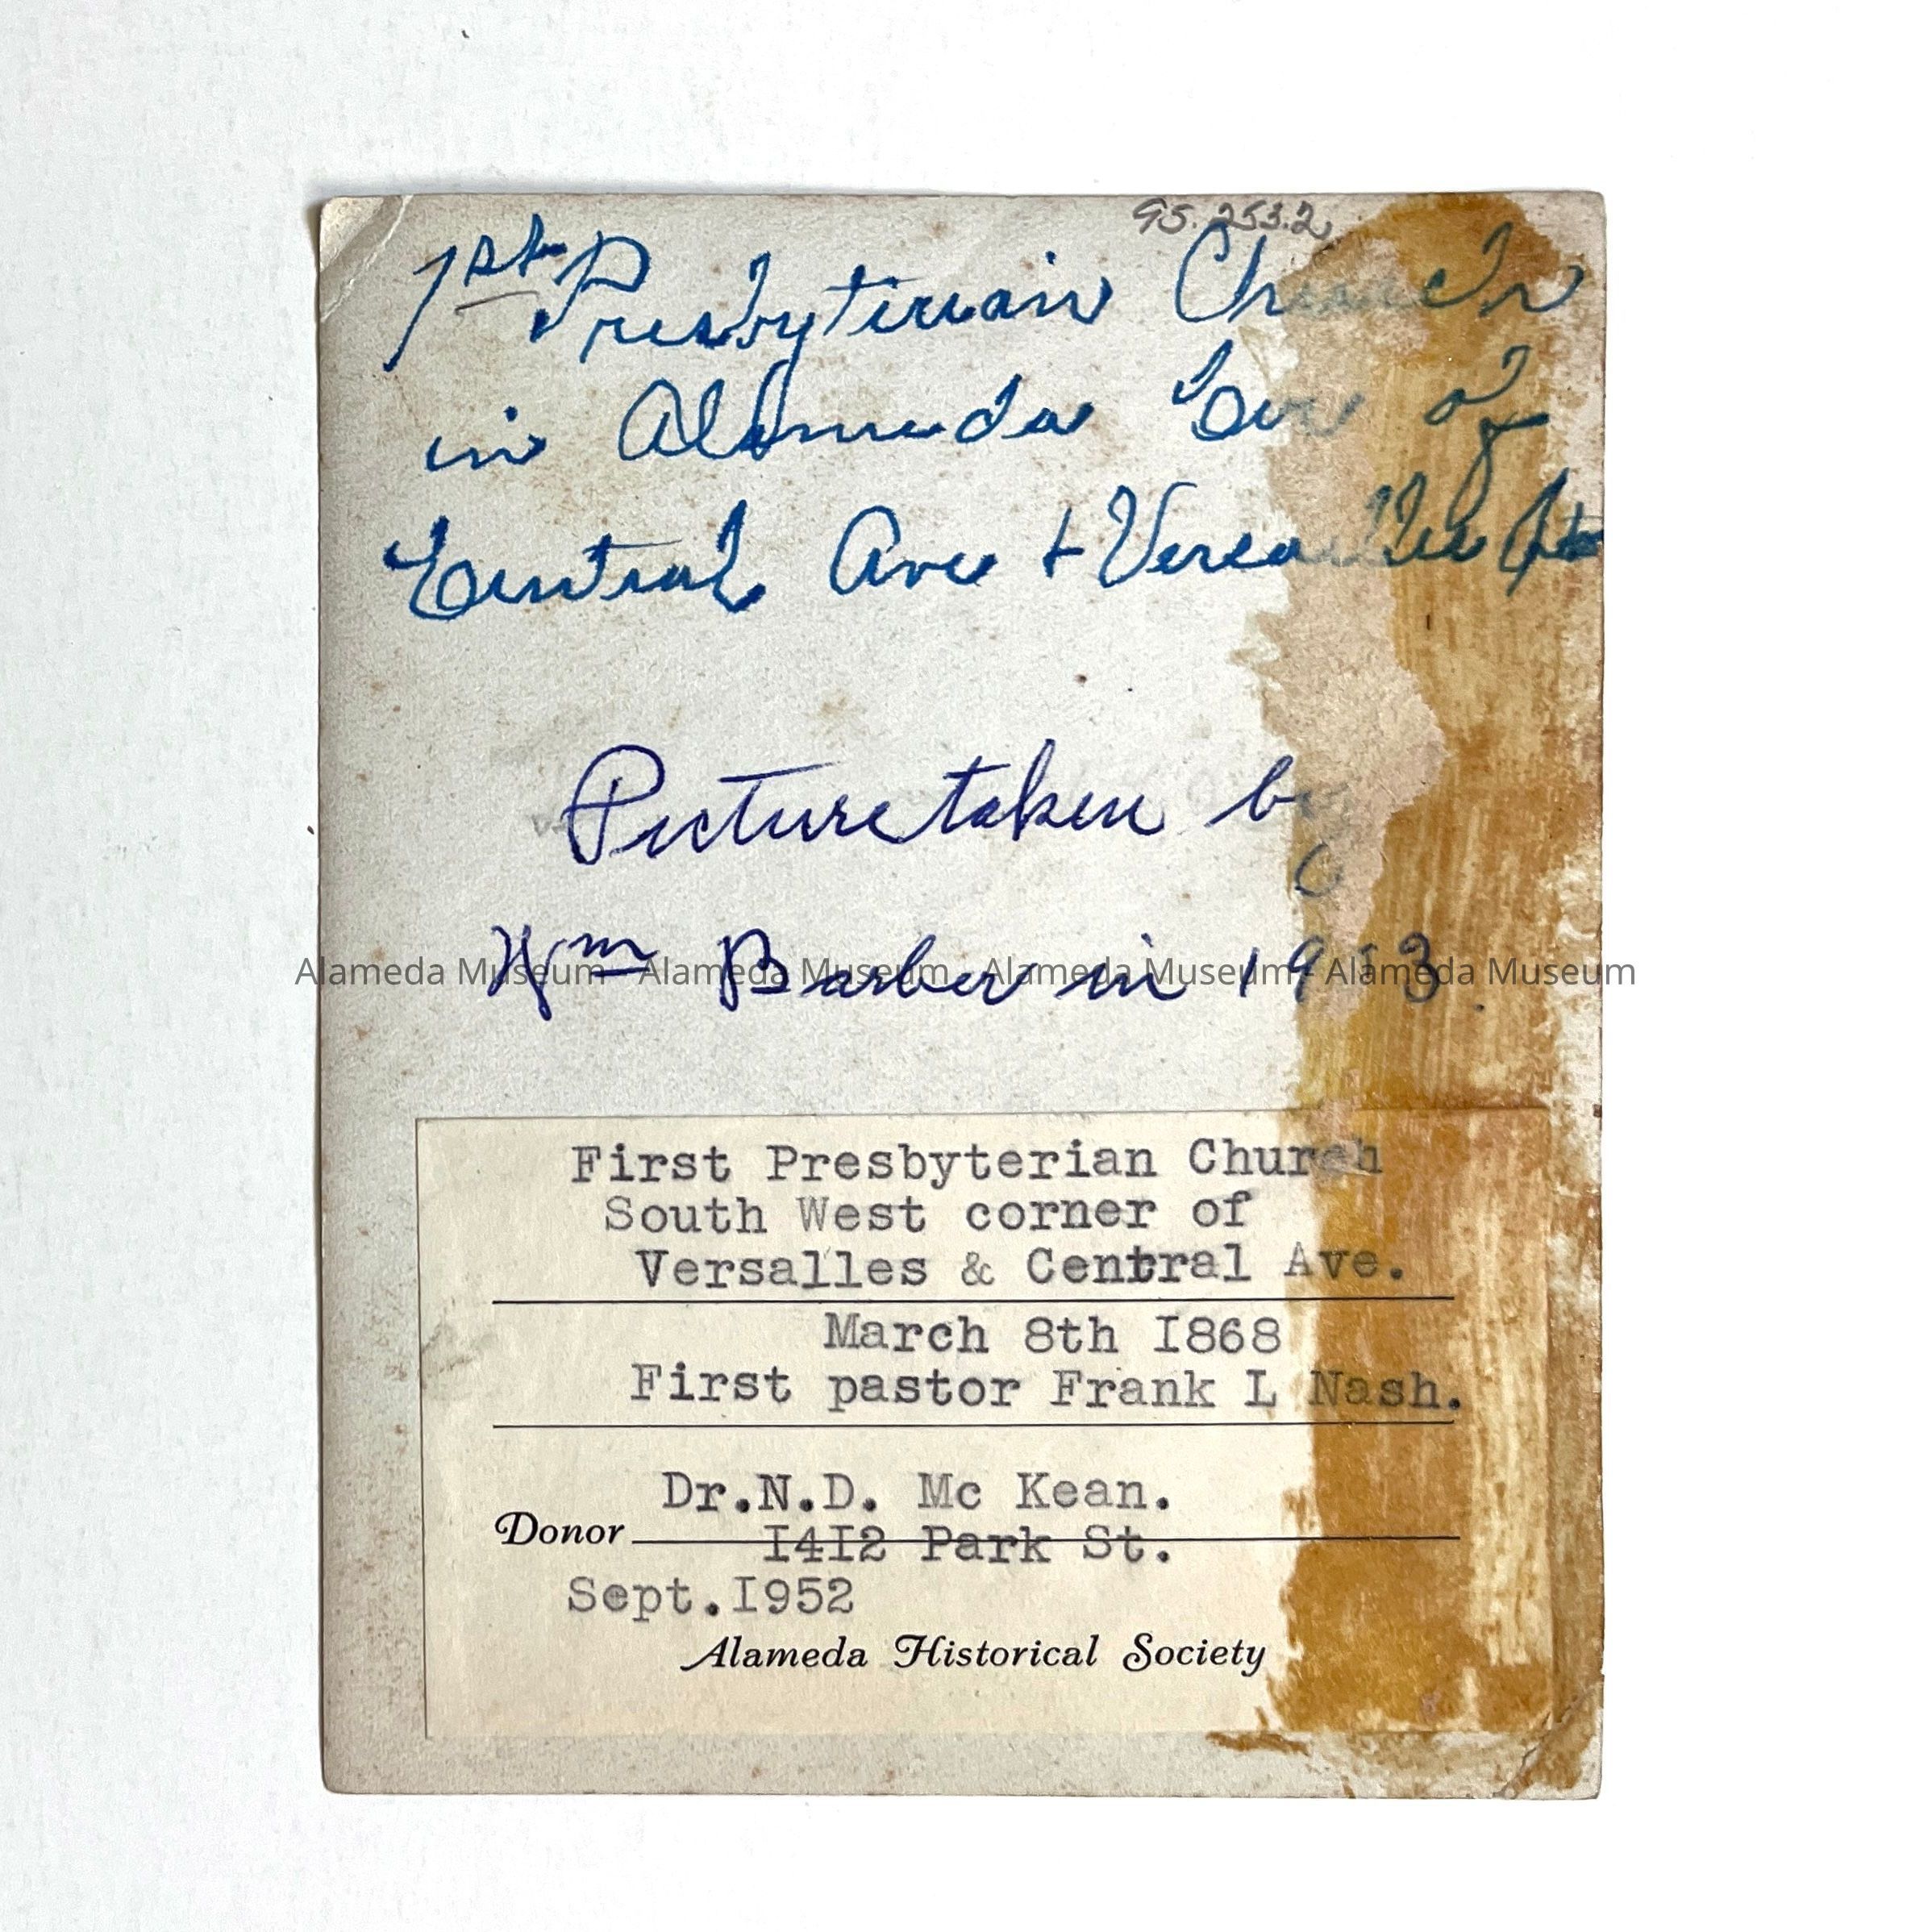 95.253.2
1st Presbyterian Church
in Alameda Cor of
Central Ave + Versailles
Picture taken by
Wm Barber in
Alameda Museum - Alameda Museum - Alameda Museum - Alameda Museum
First Presbyterian Church
South West corner of
Versalles & Central Ave.
March 8th I868
First pastor Frank L Nash.
Dr.N.D. Mc Kean.
Donor
I4I2 Park St.
Sept.I952
Alameda Historical Society